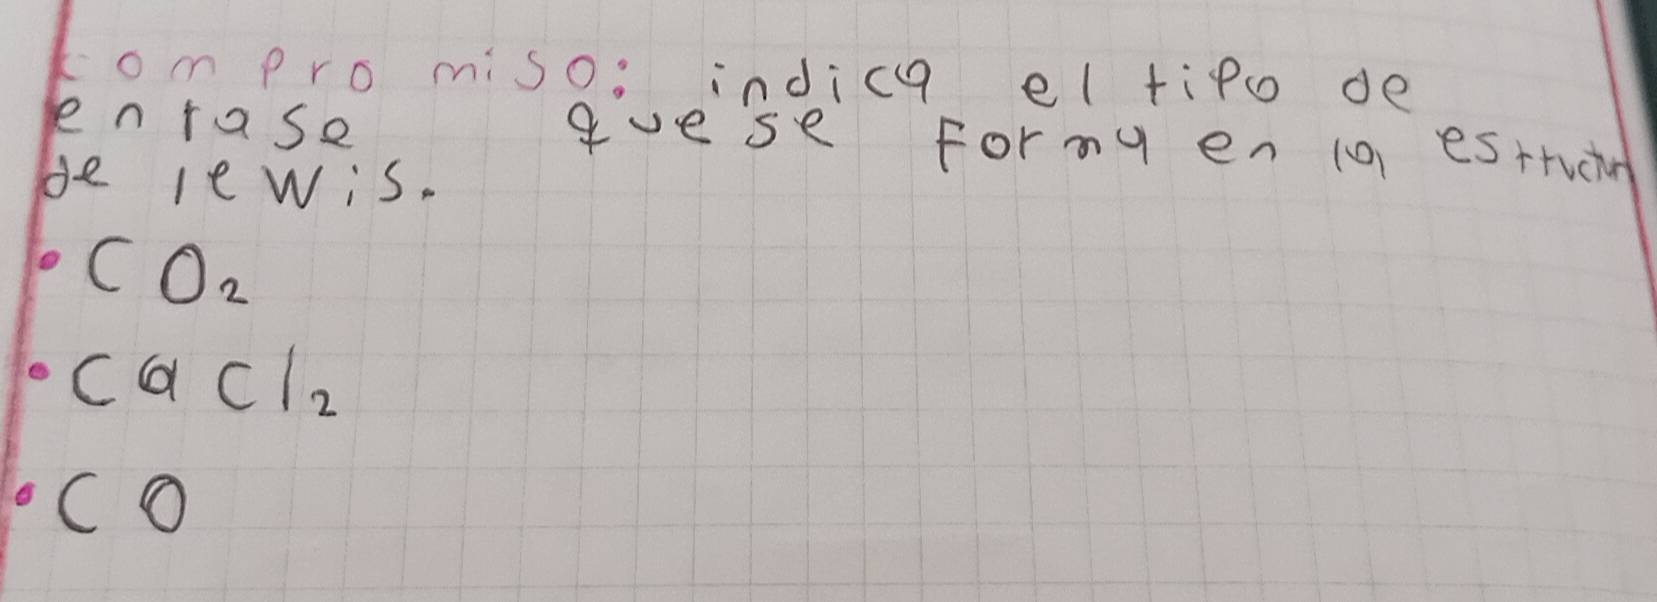 compromiso: indica el tipo de
enlase que se forma en la estructur
de lewis.
• CO₂
• CaCl₂
• CO